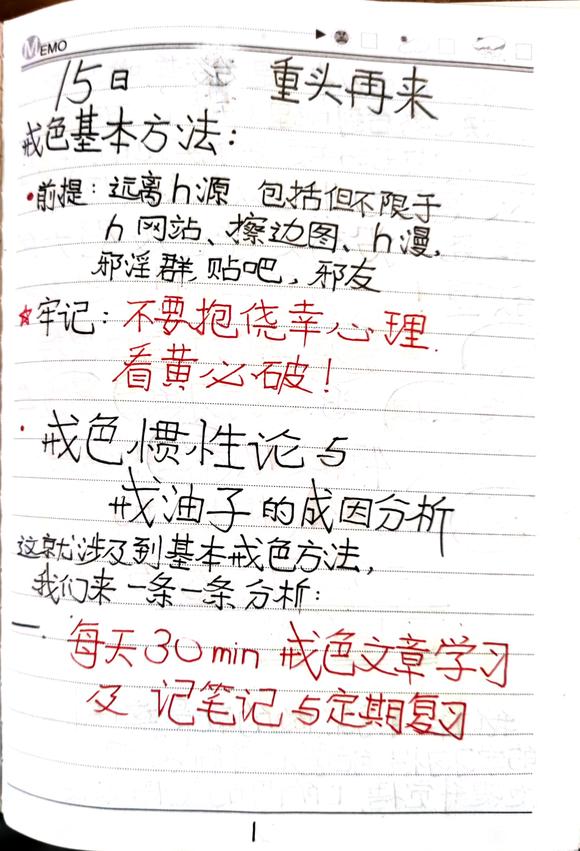 MEMO
15日 重头再来
戒色基本方法:
•前提:远离h源 包括但不限于
h网站、擦边图、h漫,
邪淫群,贴吧,邪友
☆牢记:不要抱侥幸心理.
看黄必破!
·戒色惯性论与
戒油子的成因分析
这就涉及到基本戒色方法,
我们来一条一条分析:
一.每天30min戒色文章学习
及 记笔记与定期复习
1